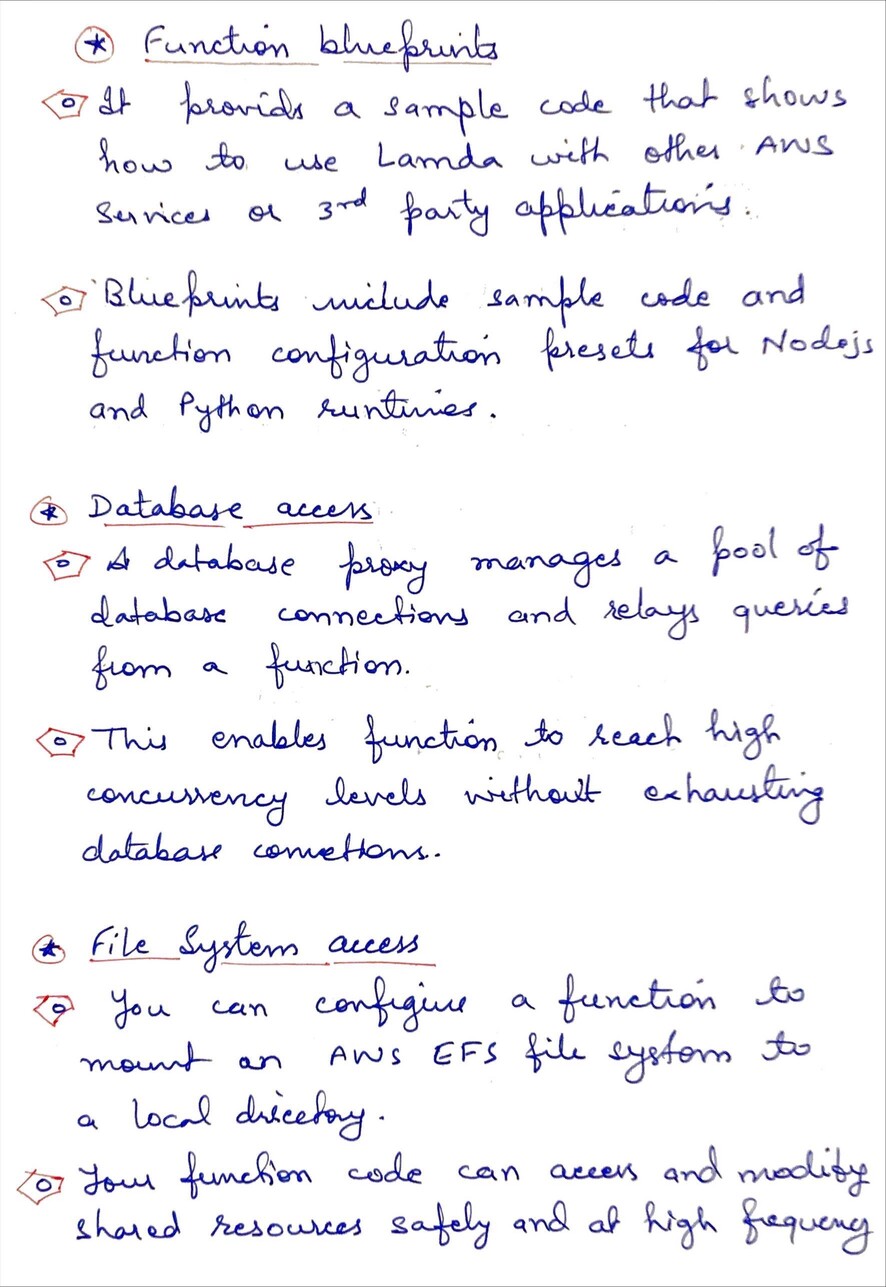 Function blueprints
It provids a sample code that shows
how to use Lamda with other AWS
Services or 3rd party applications.
Blueprints include sample code and
function configuration presets for Nodejs
and Python runtimes.
Database access
A database proxy manages a pool of
database connections and relays queries
from a function.
This enables function to reach high
concurrency levels without exhausting
database connections.
File System access
You can configure a function to
mount an AWS EFS file system to
a local directory.
Your function code can access and modify
shared resources safely and at high frequency